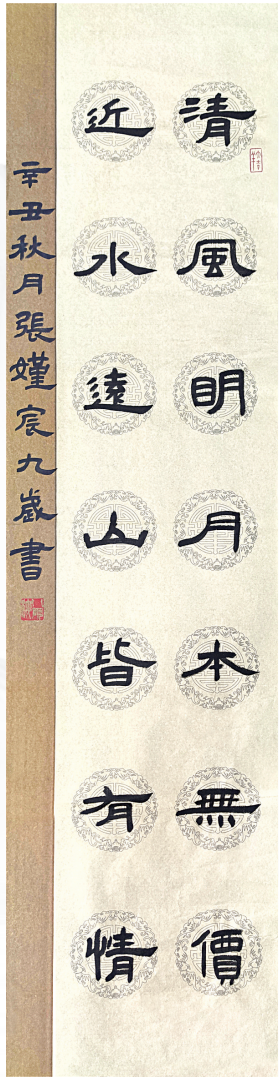 清風明月本無價
近水遠山皆有情
辛丑秋月張嫤宸九歲書